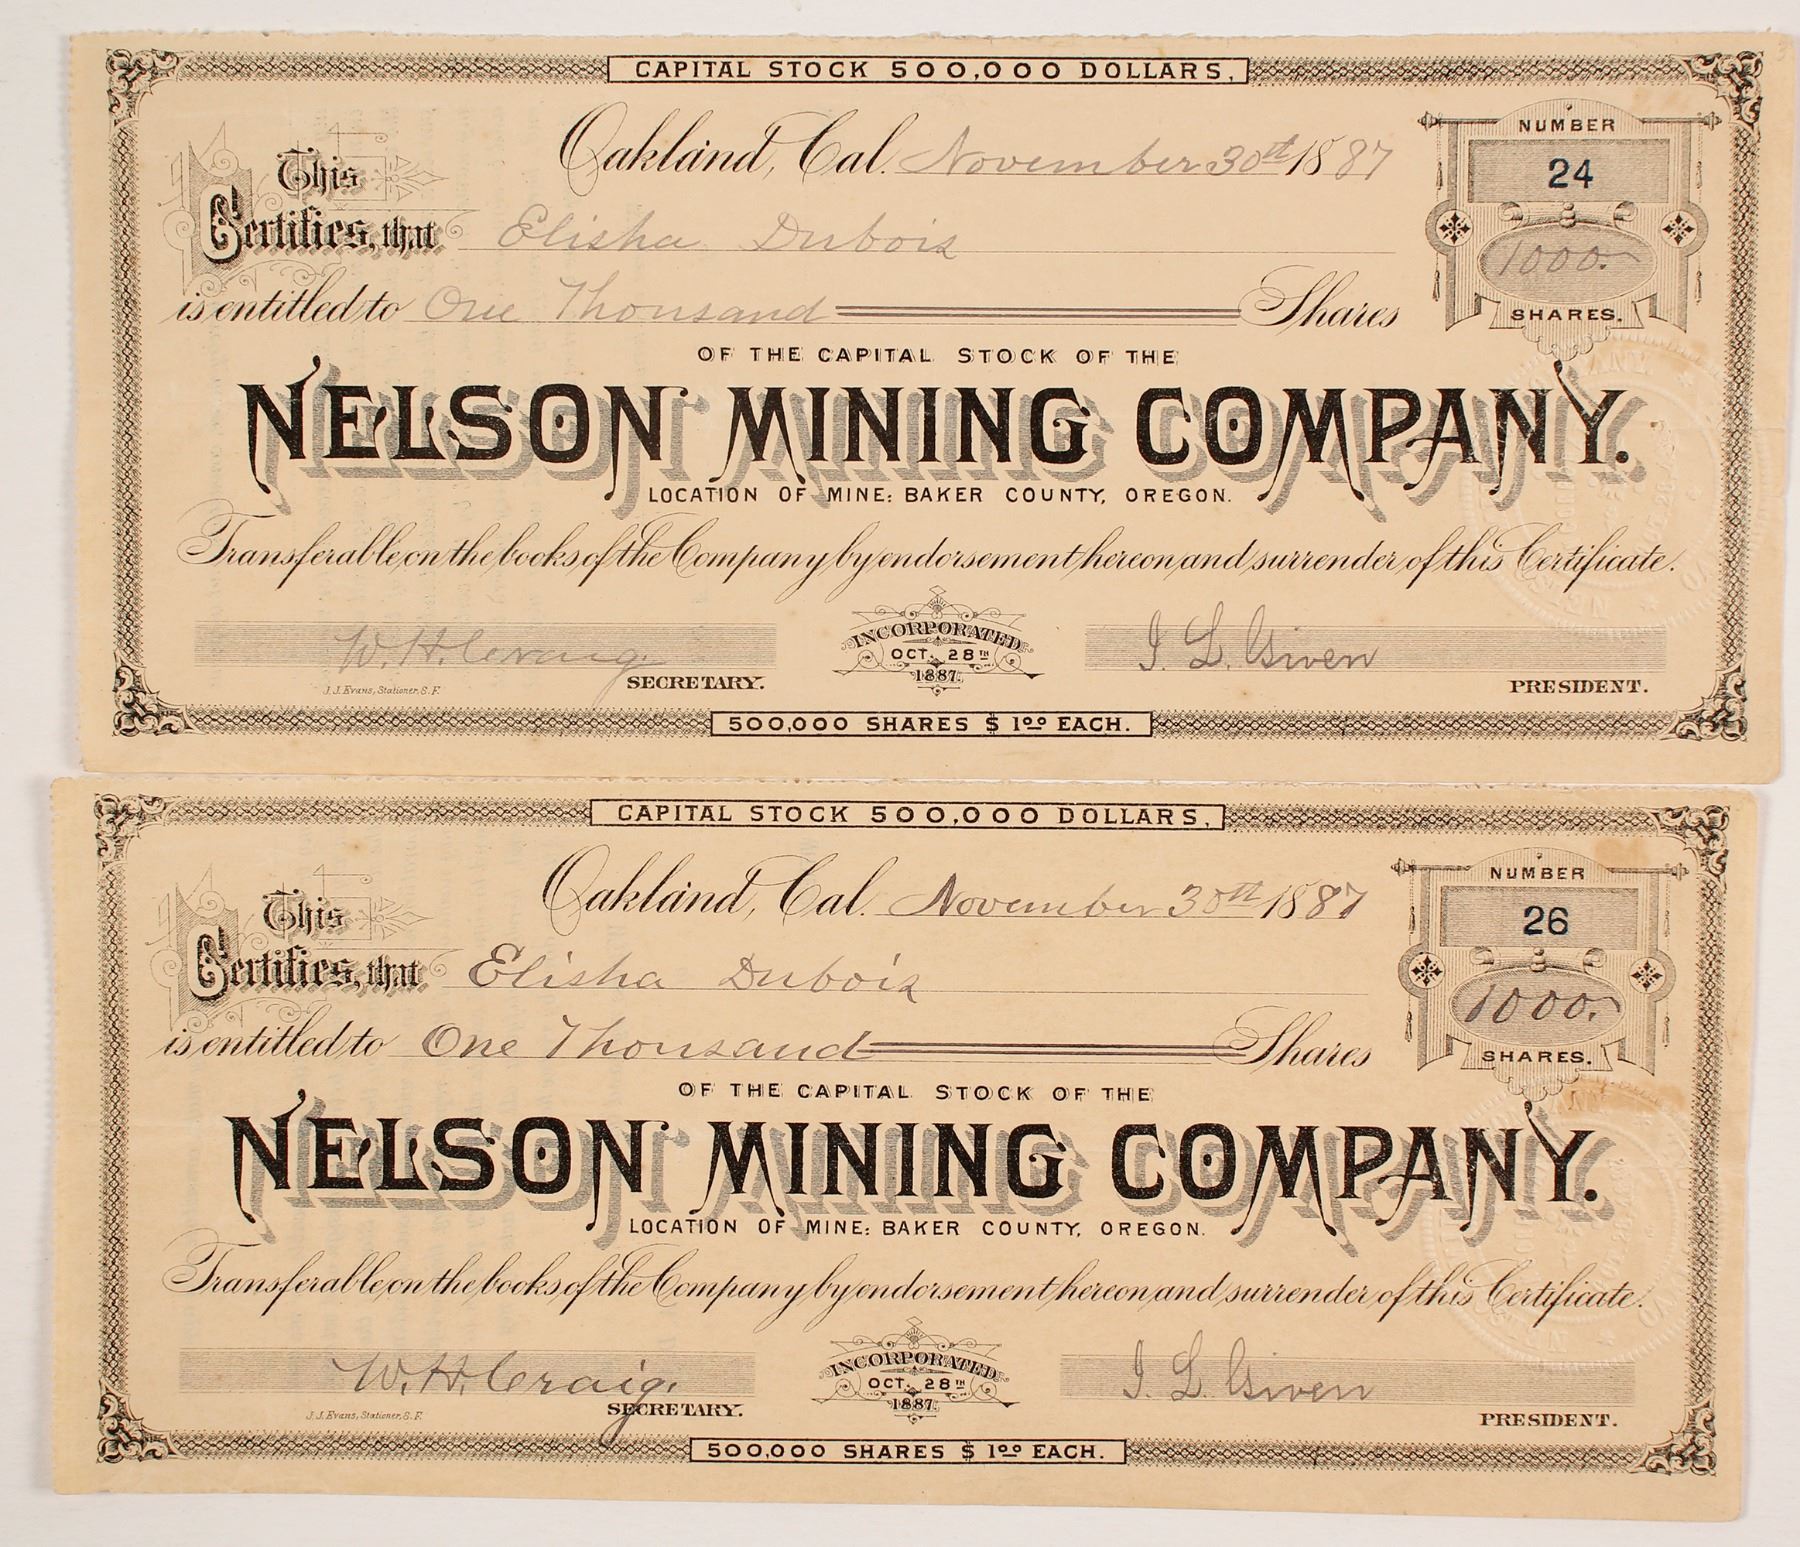 CAPITAL STOCK 500,000 DOLLARS,
Oakland, Cal. November 30th 1887
NUMBER
24
This
Certifies, that Elisha Dubois
1000.
is entitled to One Thousand Shares
SHARES.
OF THE CAPITAL STOCK OF THE
NELSON MINING COMPANY.
LOCATION OF MINE: BAKER COUNTY, OREGON.
Transferable on the books of the Company by endorsement hereon and surrender of this Certificate.
W. H. Craig
SECRETARY.
J. J. Evans, Stationer, S. F.
INCORPORATED
OCT. 28TH
1887.
I. L. Given
PRESIDENT.
500,000 SHARES $1.00 EACH.
CAPITAL STOCK 500,000 DOLLARS,
Oakland, Cal. November 30th 1887
NUMBER
26
This
Certifies, that Elisha Dubois
1000.
is entitled to One Thousand Shares
SHARES.
OF THE CAPITAL STOCK OF THE
NELSON MINING COMPANY.
LOCATION OF MINE: BAKER COUNTY, OREGON.
Transferable on the books of the Company by endorsement hereon and surrender of this Certificate.
W. H. Craig.
SECRETARY.
J. J. Evans, Stationer, S. F.
INCORPORATED
OCT. 28TH
1887.
I. L. Given
PRESIDENT.
500,000 SHARES $1.00 EACH.